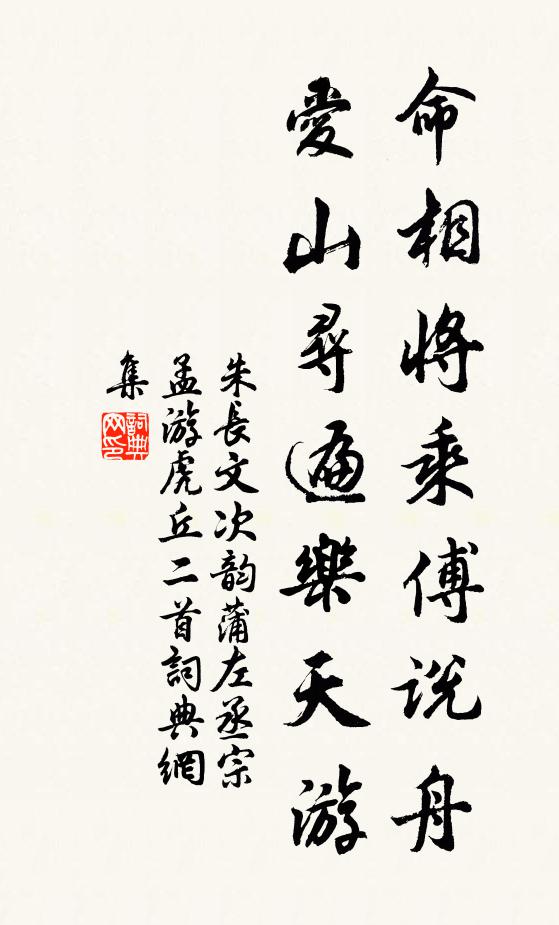 命相將乘傅说舟
愛山尋遍樂天游
朱長文次韵蒲左丞宗
孟游虎丘二首詞典網
集
詞典
网印